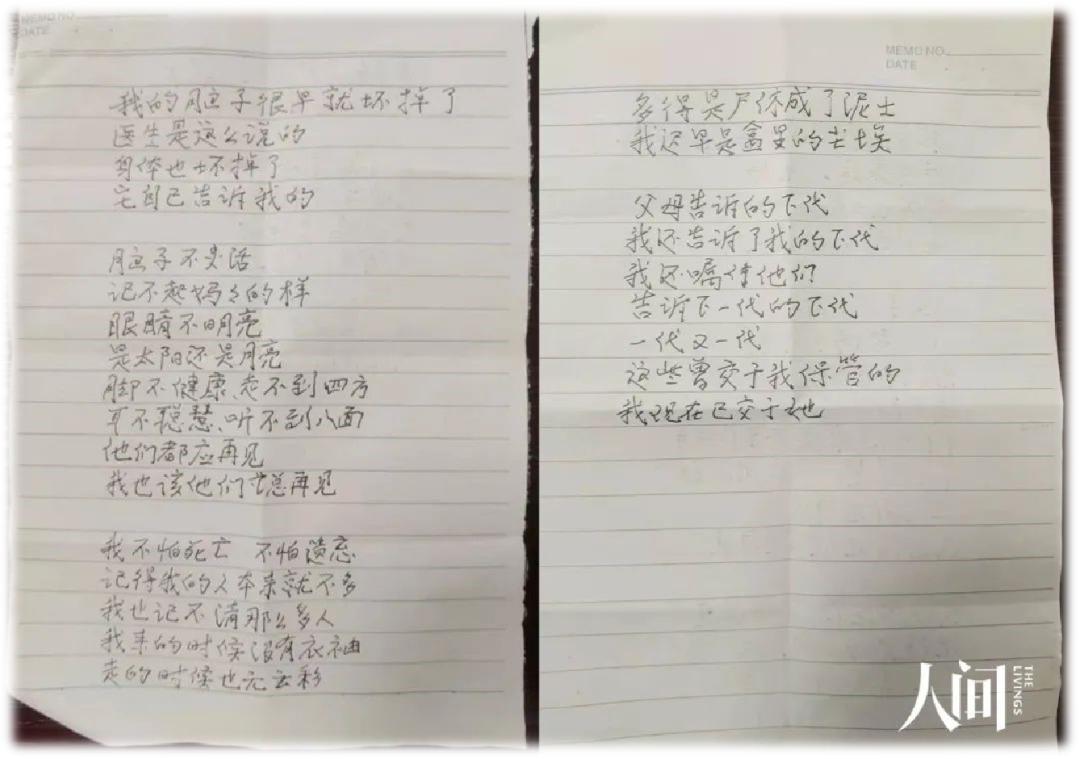 MEMO NO.
DATE
我的脑子很早就坏掉了
医生是这么说的
身体也坏掉了
它自己告诉我的
脑子不灵活
记不起妈々的样
眼睛不明亮
是太阳还是月亮
脚不健康、走不到四方
耳不聪慧、听不到八面
他们都应再见
我也该他们说再见
我不怕死亡 不怕遗忘
记得我的人本来就不多
我也记不清那么多人
我来的时候没有衣袖
走的时候也无云彩
MEMO NO.
DATE
多得是尸体成了泥土
我迟早是盒里的尘埃
父母告诉的下代
我还告诉了我的下代
我还嘱付他们
告诉下一代的下代
一代又一代
这些曾交于我保管的
我现在已交于
人间
THE LIVINGS